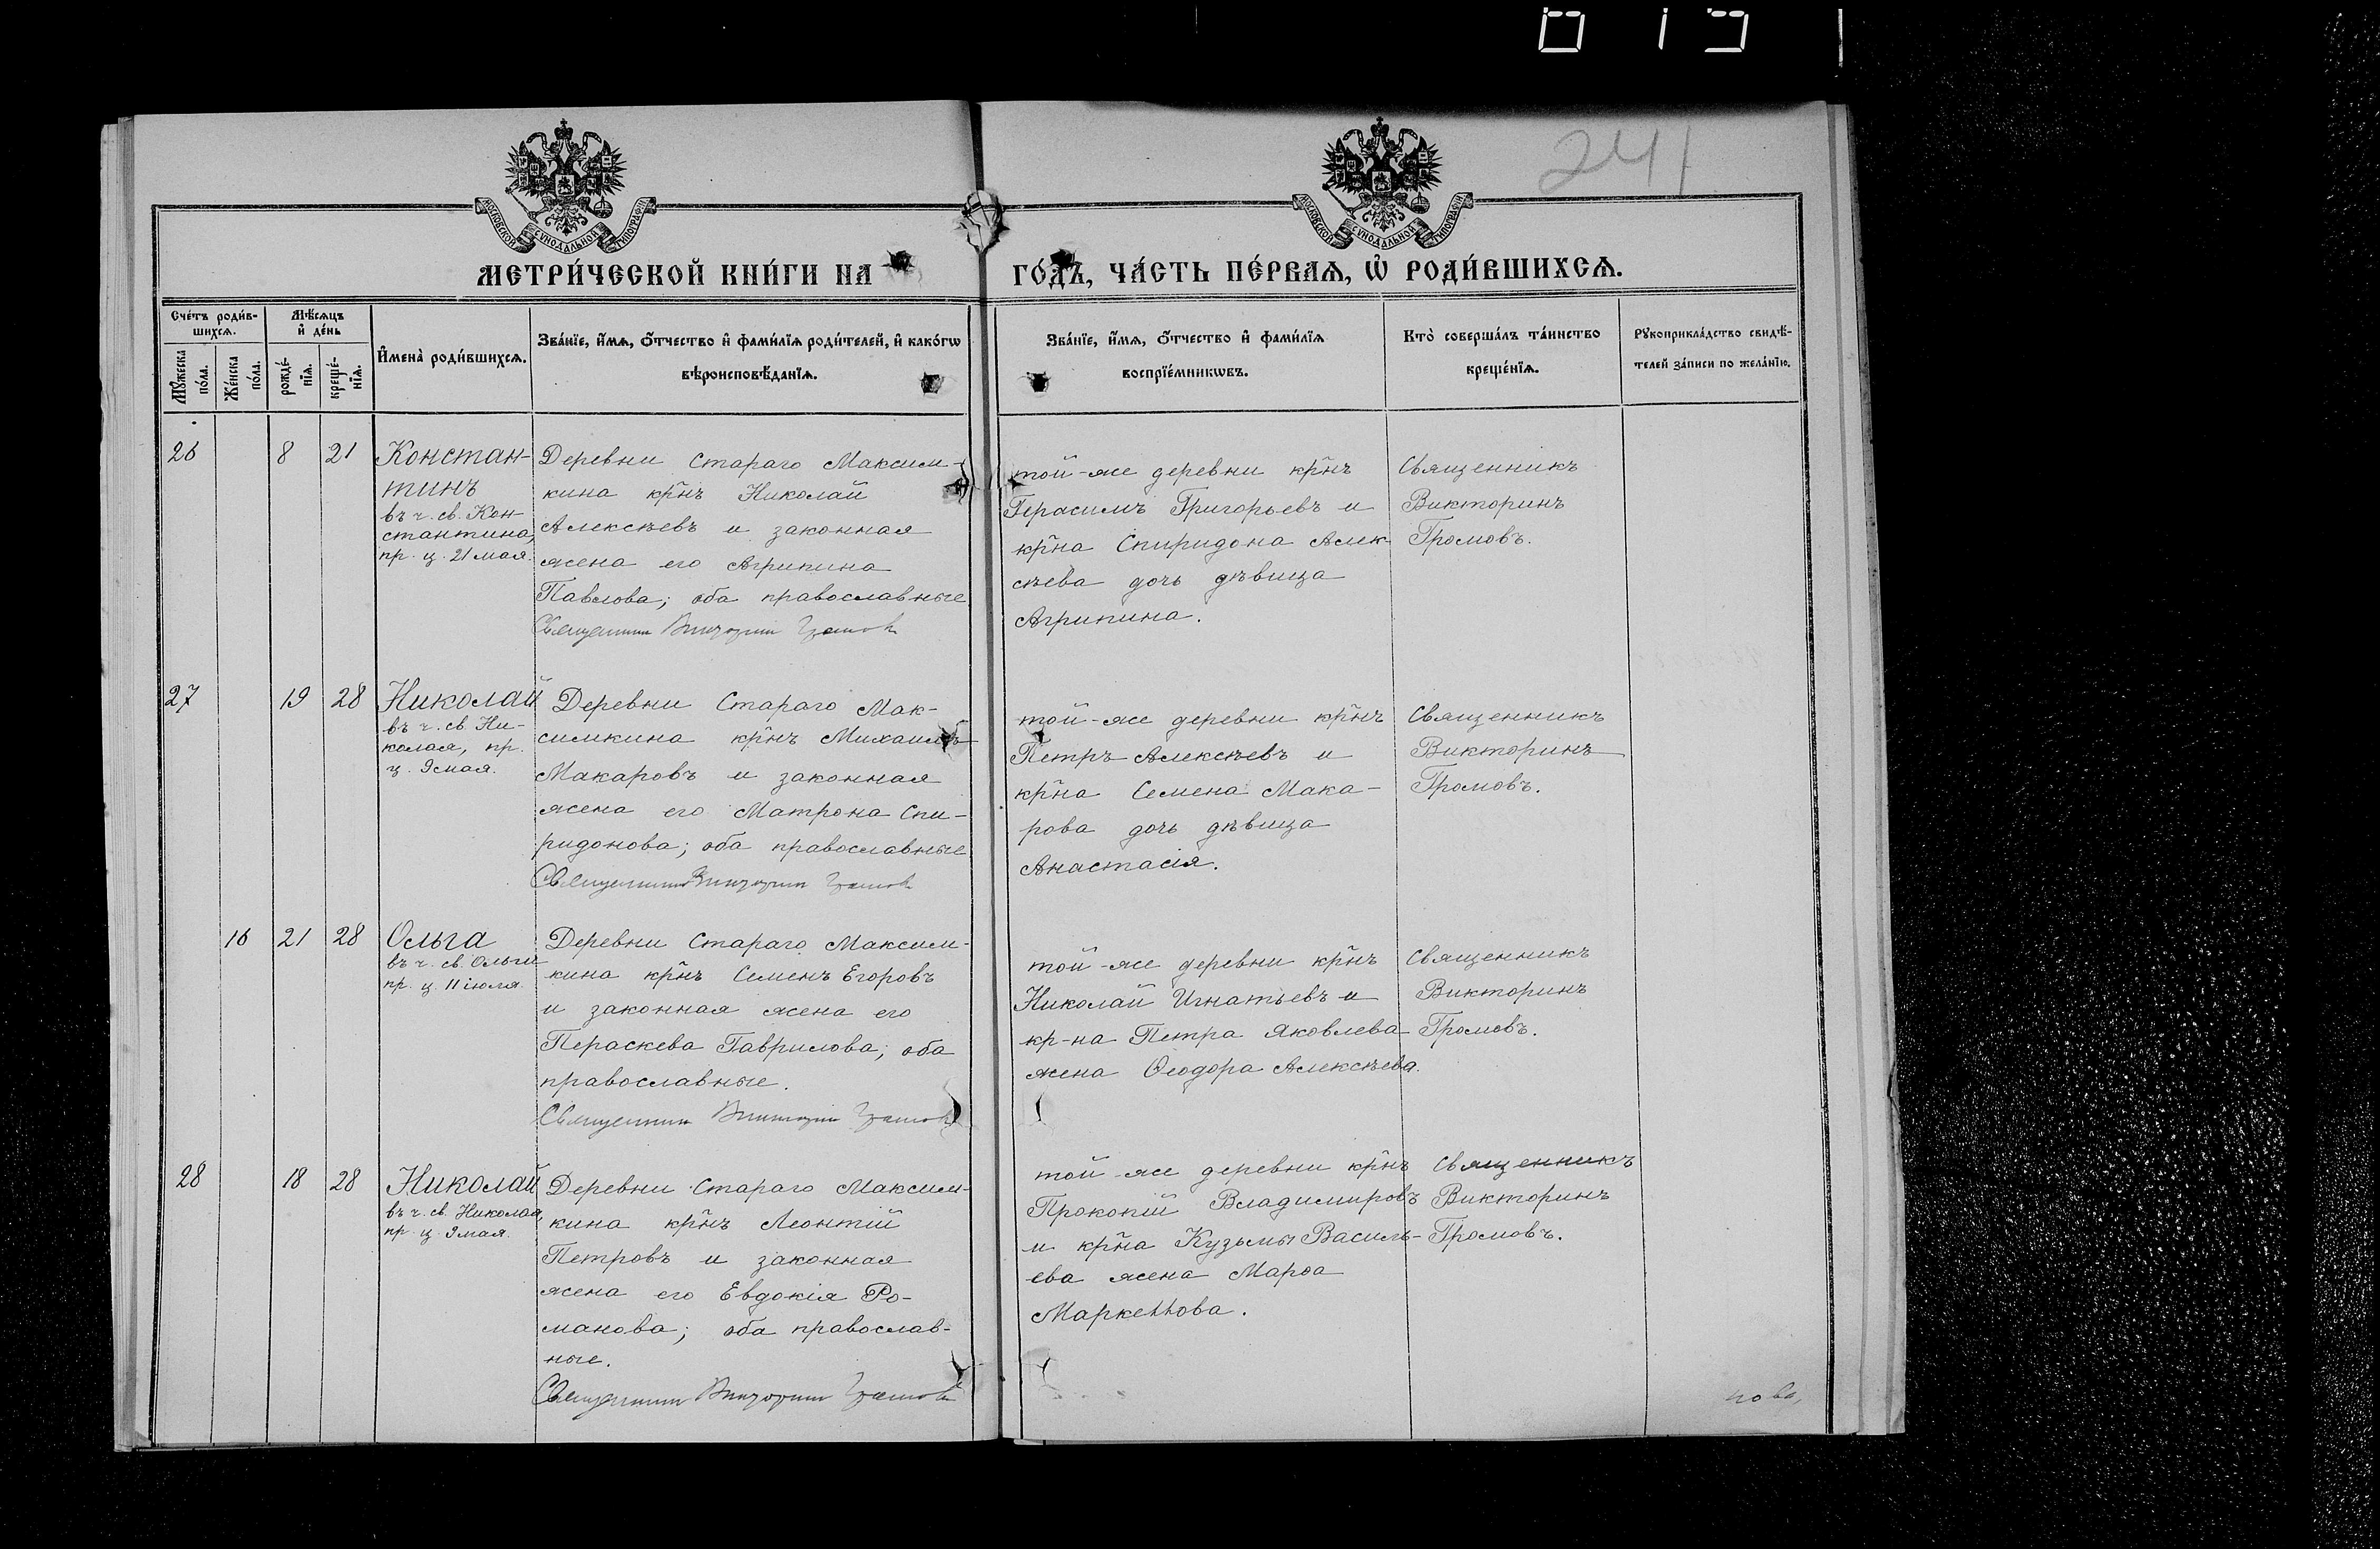 241
МОСКОВСКОЙ СУНОДАЛЬНОЙ ТИПОГРАФІИ
МОСКОВСКОЙ СУНОДАЛЬНОЙ ТИПОГРАФІИ
МЕТРИ́ЧЕСКОЙ КНИ́ГИ НА
ГО́ДЪ, ЧА́СТЬ ПЕ́РВАѦ, Ѡ҆ РОДИ́ВШИХСѦ.
Сче́тъ роди́в-
шихсѧ.
Мѣ́сѧцъ
и҆ де́нь
Мꙋ́жеска
по́ла.
Же́нска
по́ла.
рожде́-
нїѧ.
креще́-
нїѧ.
И҆мена̀ роди́вшихсѧ.
Зва́нїе, и҆́мѧ, ѻ҆́тчество и҆ фами́лїѧ роди́телей, и҆ како́гѡ
вѣроисповѣ́данїѧ.
Зва́нїе, и҆́мѧ, ѻ҆́тчество и҆ фами́лїѧ
воспрїе́мникѡвъ.
Кто̀ соверша́лъ та́инство
креще́нїѧ.
Рꙋкоприкла́дство свидѣ́-
телей за́писи по жела́нїю.
26 8 21
Констан-
тинъ
въ ч. св. Кон-
стантина,
пр. ц. 21 мая.
Деревни Стараго Максим-
кина кр̃нъ Николай
Алексѣевъ и законная
жена его Агрипина
Павлова; оба православные
Священник Викторин Громов
той-же деревни кр̃нъ
Герасимъ Григорьевъ и
кр̃на Спиридона Алек-
сѣева дочь дѣвица
Агрипина.
Священникъ
Викторинъ
Громовъ.
27 19 28
Николай
въ ч. св. Ни-
колая, пр.
ц. 9 мая.
Деревни Стараго Мак-
симкина кр̃нъ Михаилъ
Макаровъ и законная
жена его Матрона Спи-
ридонова; оба православные
Священник Викторин Громов
той-же деревни кр̃нъ
Петръ Алексѣевъ и
кр̃на Семена Мака-
рова дочь дѣвица
Анастасія.
Священникъ
Викторинъ
Громовъ.
16 21 28
Ольга
въ ч. св. Ольги
пр. ц. 11 іюля.
Деревни Стараго Максим-
кина кр̃нъ Семенъ Егоровъ
и законная жена его
Параскева Гаврилова; оба
православные.
Священник Викторин Громов
той-же деревни кр̃нъ
Николай Игнатьевъ и
кр-на Петра Яковлева
жена Ѳеодора Алексѣева.
Священникъ
Викторинъ
Громовъ.
28 18 28
Николай
въ ч. св. Николая,
пр. ц. 9 мая.
Деревни Стараго Максим-
кина кр̃нъ Леонтій
Петровъ и законная
жена его Евдокія Ро-
манова; оба православ-
ные.
Священник Викторин Громов
той-же деревни кр̃нъ
Прокопій Владимировъ
и кр̃на Кузьмы Василь-
ева жена Марѳа
Маркеллова.
Священникъ
Викторинъ
Громовъ.